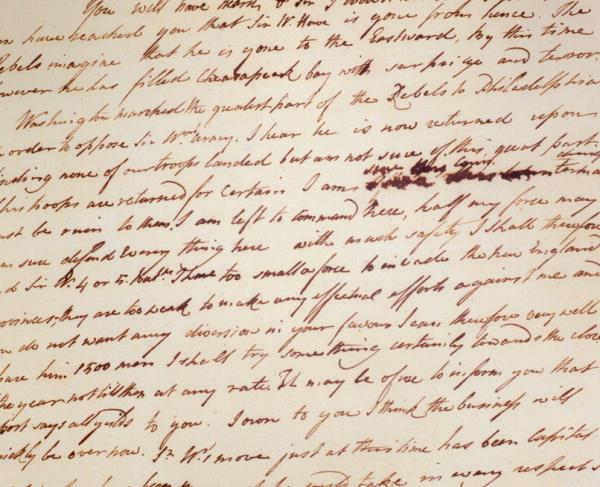 You will have heard, D Sir I doubt
have reached you that Sir W. Howe is gone from hence. The
Rebels imagine that he is gone to the Eastward, By this time
however he has filled Chesapeak bay with surprize and terror.
Washington marched the greatest part of the Rebels to Philadelphia
order to oppose Sir Wm's army. I hear he is now returned upon
finding none of our troops landed but am not sure of this, great part
his troops are returned for certain I am sure this
must be ruin to them. I am left to command here, half my force may
am sure defend every thing here with much safety I shall therefore
Sir W. 4 or 5 Batns. I have too small a force to invade the New England
provinces, they are too weak to make any effectual efforts against me and
do not want any diversion in your favour I can therefore very well
him 1500 men I shall try something certainly towards the close
the year not till then at any rate. It may be of use to inform you that
report says all yields to you. I own to you I think the business will
quickly be over now. Sr. W's move just at this time has been Capital
take in every respect